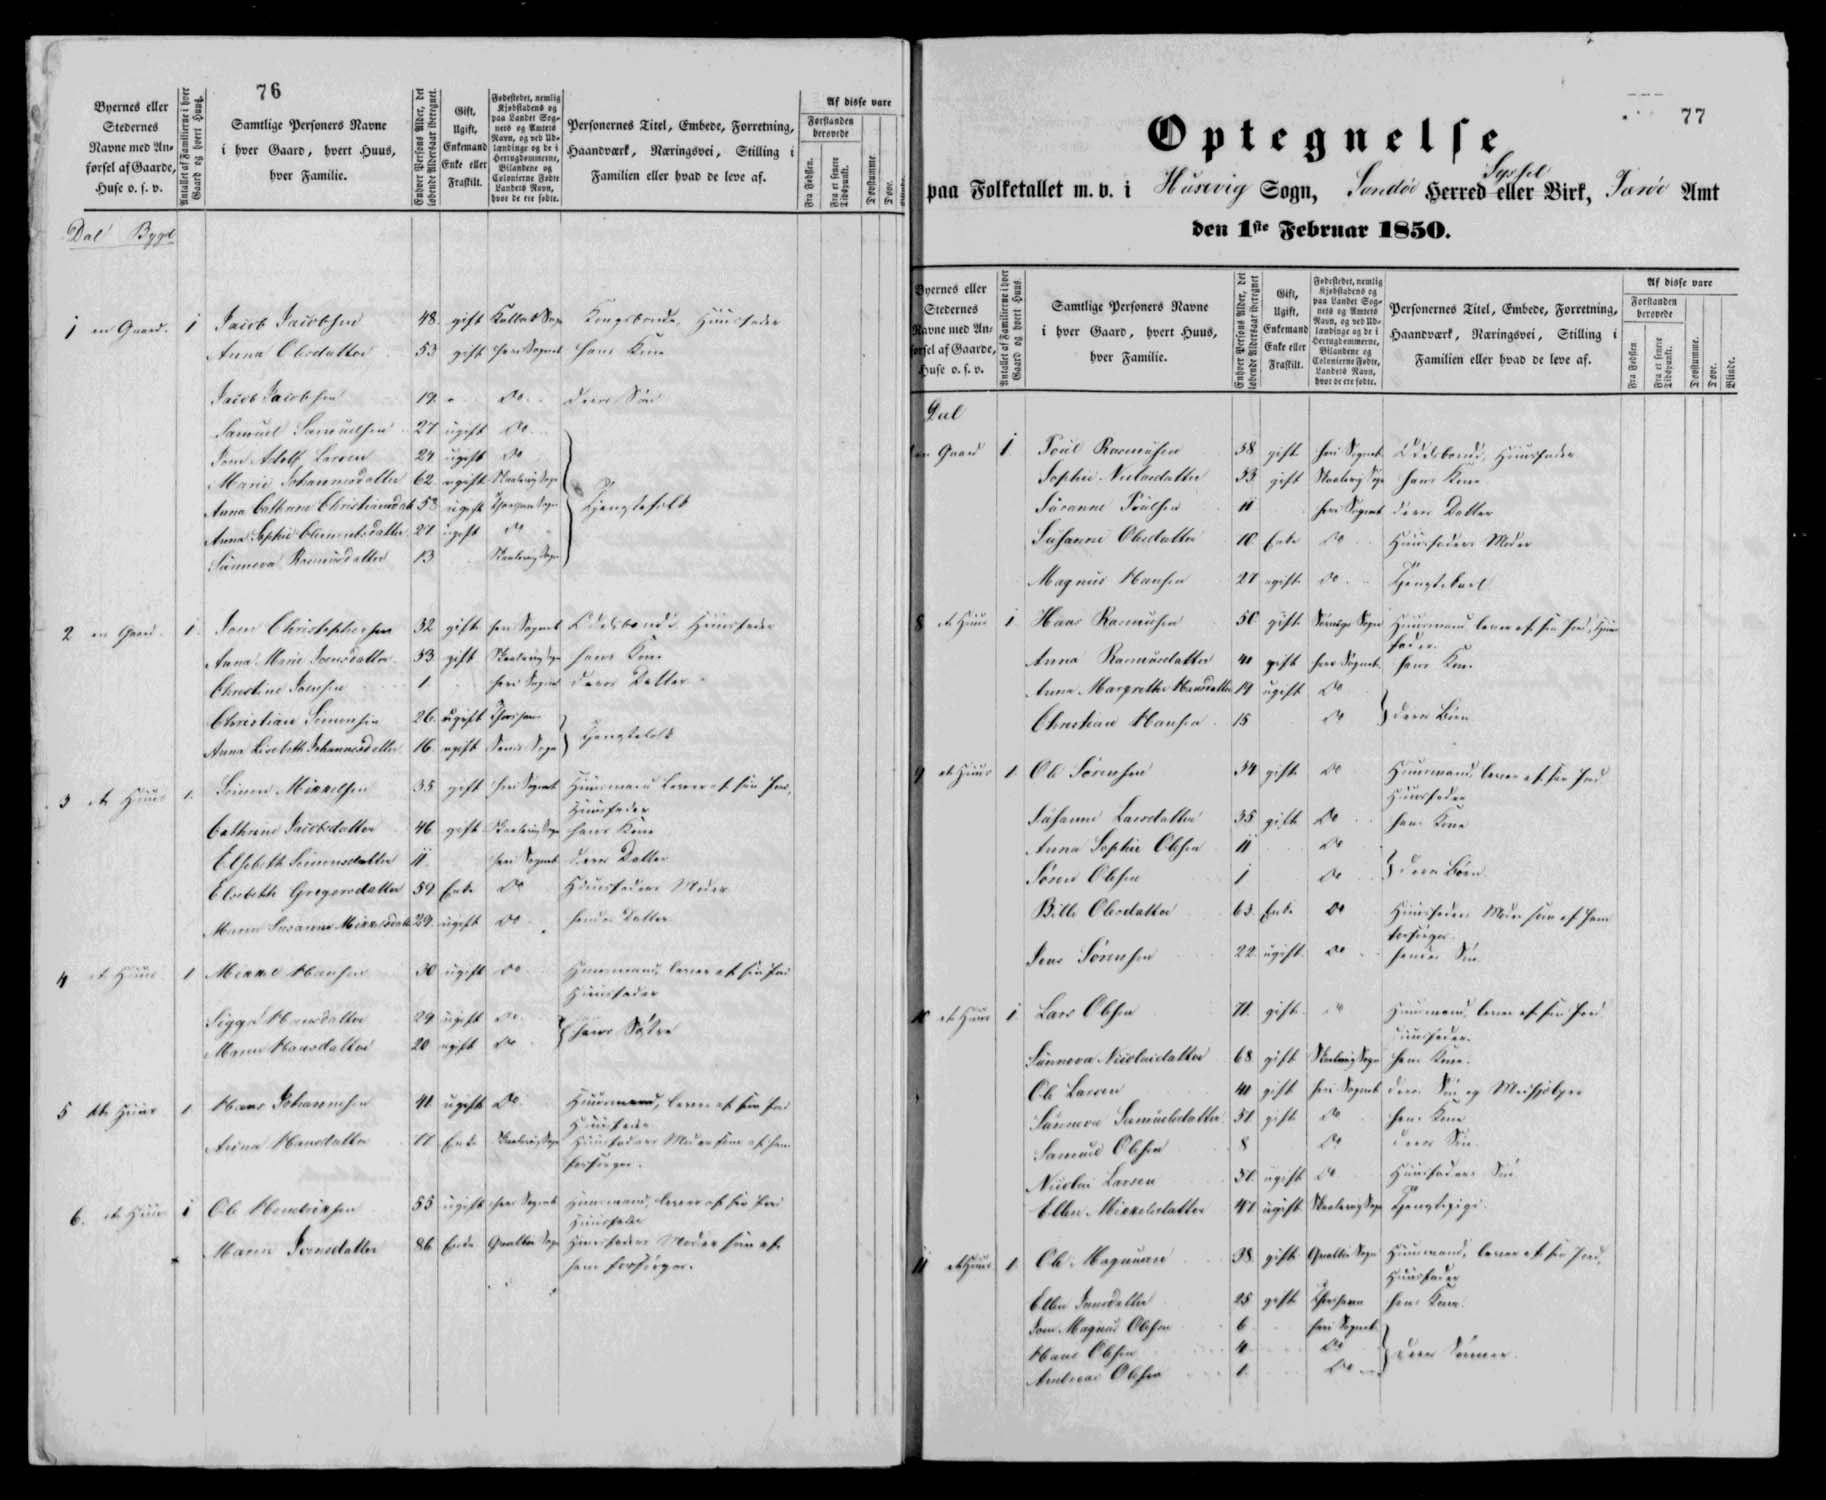 76
Byernes eller Stedernes Navne med Anførsel af Gaarde, Huse o. s. v.
Antallet af Familierne i hver Gaard og hvert Huus.
Samtlige Personers Navne i hver Gaard, hvert Huus, hver Familie.
Enhver Persons Alder, det løbende Aldersaar iberegnet.
Gift, Ugift, Enkemand Enke eller Fraskilt.
Fødestedet, nemlig Kjøbstadens og paa Landet Sognets og Amtets Navn, og ved Udlændinge og de i Hertugdømmerne, Bilandene og Colonierne Fødte Landets Navn, hvor de ere fødte.
Personernes Titel, Embede, Forretning, Haandværk, Næringsvei, Stilling i Familien eller hvad de leve af.
Af disse vare
Forstanden berøvede
Fra Fødslen.
Fra et senere Tidspunkt.
Døvstumme.
Døve.
Blinde.
Dal Bygd
1 en Gaard. 1 Jacob Jacobsen 48. gift Kongsbonde, Huusfader
Anna Olesdatter 53 gift her i Sognet hans Kone
Jacob Jacobsen 19. Do deres Søn
Samuel Samuelsen 27 ugift Do
Joen Adolf Larsen 24 ugift Do
Marie Johannesdatter 62. ugift Skaalevig Sogn
Anna Cathrine Christiansdat 53 ugift Thorshavn Sogn Tjenestefolk
Anna Sophie Clementsdatter 21 ugift Do
Sunneva Rasmusdatter 13 Skaalevig Sogn
2 en Gaard. 1. Joen Christophersen 32 gift her i Sognet Odelsbonde, Huusfader
Anna Marie Joensdatter 33. gift Skaalevig Sogn hans Kone
Christine Joensen 1. her i Sognet deres Datter
Christian Simonsen 26. ugift Thorshavn
Anna Lisebeth Johannesdatter 16. ugift Sands Sogn Tjenestefolk
3 et Huus 1. Simon Mikkelsen 35 gift her i Sognet Huusmand lever af sin Jord, Huusfader
Cathrine Jacobsdatter 46 gift Skaalevig Sogn hans Kone
Elsebeth Simonsdatter 11. her i Sognet deres Datter
Elsebeth Gregersdatter 59 Enke Do Huusfaders Moder
Maren Susanne Mikkelsdatt 29. ugift Do hendes Datter
4 et Huus 1 Mikkel Hansen 30 ugift Do Huusmand, lever af sin Jord Huusfader
Sigga Hansdatter 24 ugift Do
Maren Hansdatter 20 ugift Do hans Søstre
5 et Huus 1 Hans Johannesen 41 ugift Do Huusmand, lever af sin Jord Huusfader
Anna Hansdatter 77 Enke Skaalevig Sogn Huusfaders Moder som af ham forsørges.
6. et Huus 1 Ole Hendriksen 55 ugift her i Sognet Huusmand, lever af sin Jord Huusfader
Maren Joensdatter 86 Enke Qvalbø Sogn Huusfaders Moder som af ham forsørges.
77
Optegnelse
paa Folketallet m. v. i Husevig Sogn, Sandøe Herred eller Birk, Syssel Færøe Amt
den 1ste Februar 1850.
Byernes eller Stedernes Navne med Anførsel af Gaarde, Huse o. s. v.
Antallet af Familierne i hver Gaard og hvert Huus.
Samtlige Personers Navne i hver Gaard, hvert Huus, hver Familie.
Enhver Persons Alder, det løbende Aldersaar iberegnet
Gift, Ugift, Enkemand Enke eller Fraskilt.
Fødestedet, nemlig Kjøbstadens og paa Landet Sognets og Amtets Navn, og ved Udlændinge og de i Hertugdømmerne, Bilandene og Colonierne Fødte, Landets Navn, hvor de ere fødte.
Personernes Titel, Embede, Forretning, Haandværk, Næringsvei, Stilling i Familien eller hvad de leve af.
Af disse vare
Forstanden berøvede
Fra Fødslen.
Fra et senere Tidspunkt.
Døvstumme.
Døve.
Blinde.
Dal
en Gaard 1. Poul Rasmusen 58. gift her i Sognet Odelsbonde, Huusfader
Sophie Nielsdatter 53 gift Skaalevig Sogn hans Kone
Susanne Poulsen 11 her i Sognet deres Datter
Susanne Olesdatter Enke Do Huusfaders Moder
Magnus Hansen 27 ugift Do Tjenestekarl
8 et Huus 1 Hans Rasmusen 50 gift Sogn Huusmand lever af sin Jord, Huusfader.
Anna Rasmusdatter 41 gift her i Sognet hans Kone
Anna Margrethe Hansdatter 19 ugift Do
Christian Hansen 15 Do deres Børn
9 et Huus 1 Ole Sørensen 34 gift Do Huusmand, lever af sin Jord Huusfader
Susanne Larsdatter 35 gift Do hans Kone
Anna Sophie Olesen 11 Do
Søren Olesen 1 Do deres Børn.
Bitte Olesdatter 63. Enke Do Huusfaders Moder som af ham forsørges.
Jens Sørensen 22. ugift Do hendes Søn.
10 et Huus 1 Lars Olesen 71. gift Do Huusmand, lever af sin Jord. Huusfader.
Sunneva Nicolaisdatter 68 gift Skaalevig Sogn hans Kone.
Ole Larsen 41 gift her i Sognet deres Søn og Medhjelper
Sunneva Samuelsdatter 51 gift Do hans Kone
Samuel Olesen 8 Do deres Søn.
Nicolai Larsen 30. ugift Do Huusfaders Søn
Ellen Mikkelsdatter 47 ugift Skaalevig Sogn Tjenestepige.
11 et Huus 1 Ole Magnusen 38 gift Qvalbø Sogn Huusmand, lever af sin Jord, Huusfader
Ellen Jensdatter 25 gift Thorshavn hans Kone.
Joen Magnus Olesen 6 her i Sognet
Hans Olesen 4 Do deres Sønner.
Andreas Olesen 1. Do